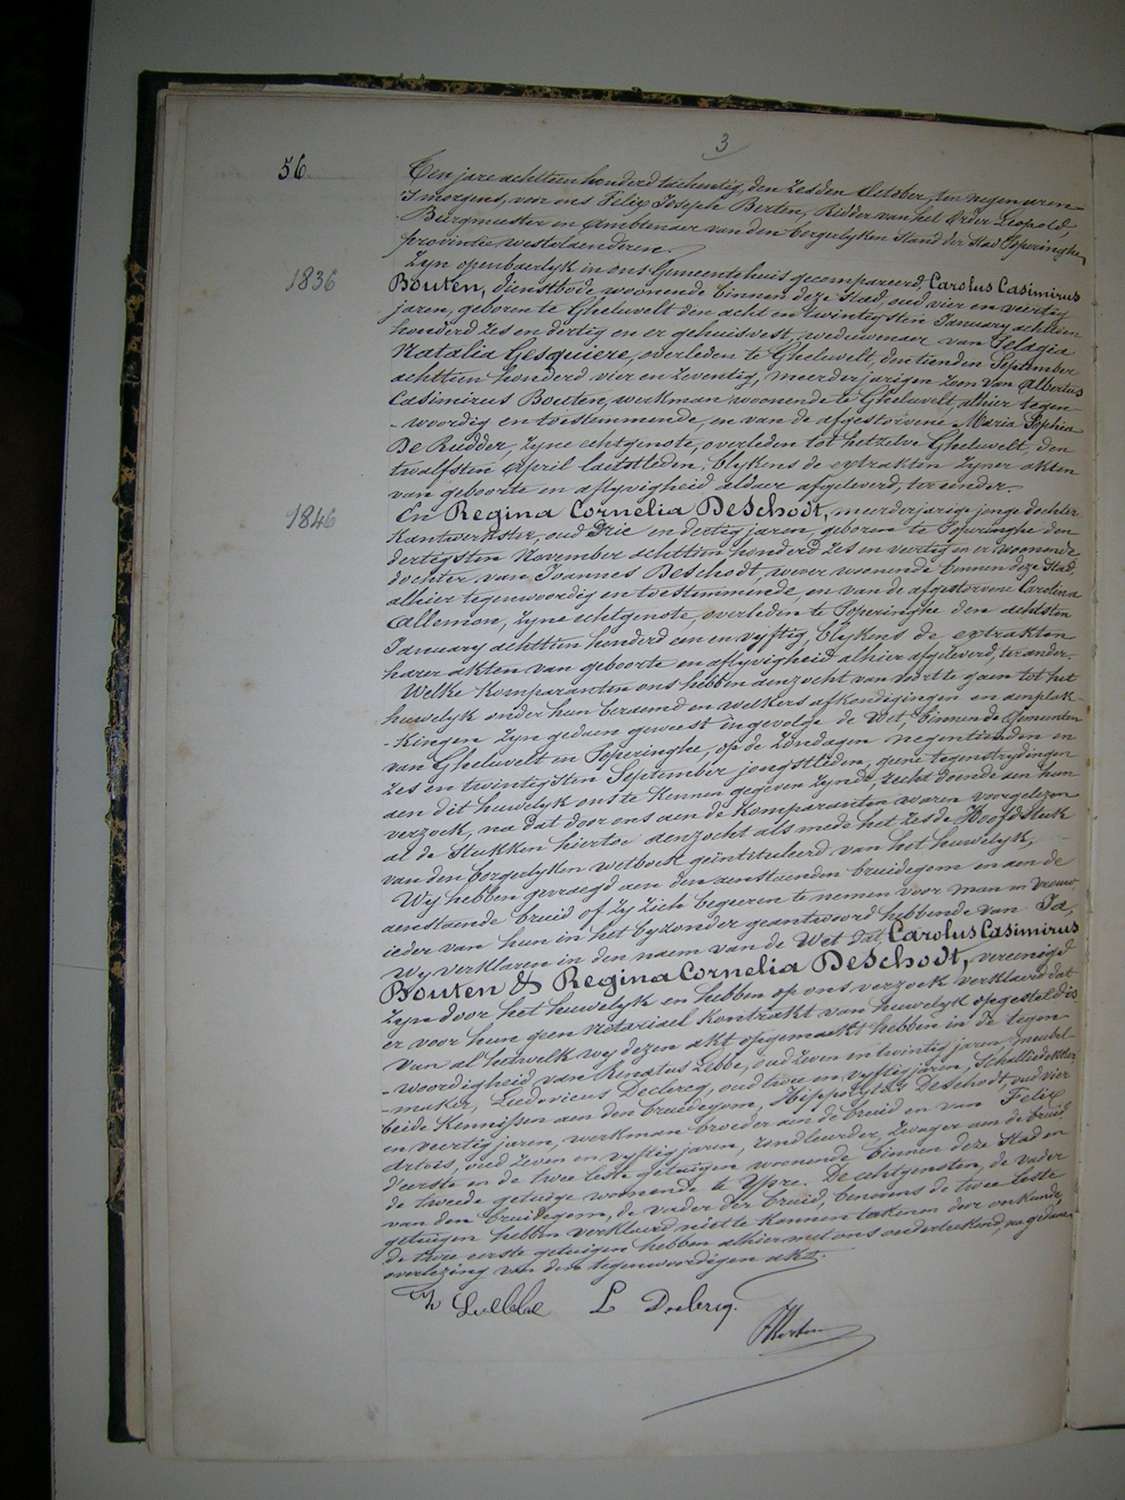 3
56
Ten jare achttien honderd tachentig, den zesden October, ten negen uren
's morgens, voor ons Felix Joseph Berten, Ridder van het Order Leopold,
Burgmeester en Ambtenaer van den borgerlyken Stand der Stad Poperinghe,
provintie westvlaenderen.
Zyn openbaerlyk in ons Gemeentehuis gecompareerd, Carolus Casimirus
1836
Bouten, dienstbode woonende binnen deze Stad, oud vier en veertig
jaren, geboren te Gheluvelt den acht en twintigsten January achttien
honderd zes en dertig en er gehuisvest, weduwenaer van Pelagia
Natalia Gesquiere, overleden te Gheluvelt, den tienden September
achttien honderd vier en zeventig, meerderjarigen zoon van Albertus
Casimirus Bouten, werkman woonende te Gheluvelt, alhier tegen-
-woordig en toestemmende, en van de afgestorvene Maria Sophia
De Rudder, zyne echtgenote, overleden tot hetzelve Gheluvelt, den
twalfsten April laetstleden, blykens de extrakten zyner akten
van geboorte en aflyvigheid aldaer afgeleverd, ter eender.
1846
En Regina Cornelia Deschodt, meerderjarige jonge dochter
Kantwerkster, oud drie en dertig jaren, geboren te Poperinghe den
dertigsten November achttien honderd zes en veertig en er woonende
dochter van Joannes Deschodt, wever woonende binnen deze Stad,
alhier tegenwoordig en toestemmende en van de afgestorvene Carolina
Allemon, zyne echtgenote, overleden te Poperinghe den achtsten
January achttien honderd een en vyftig, blykens de extrakten
harer akten van geboorte en aflyvigheid alhier afgeleverd, ter ander.
Welke Komparanten ons hebben aenzocht van voort te gaen tot het
huwelyk onder hun beraemd en welkers afkondigingen en aenplak-
-kingen zyn gedaen geweest ingevolge de Wet, binnen de Gemeenten
van Gheluvelt en Poperinghe, op de Zondagen negentienden en
zes en twintigsten September jongstleden, geene tegenstrydingen
aen dit huwelyk ons te kennen gegeven zynde, recht doende aen hun
verzoek, na dat door ons aen de Komparanten waren voorgelezen
al de Stukken hiertoe aenzocht als mede het zesde Hoofdstuk
van den borgerlyken wetboek geïntituleerd van het huwelyk,
Wy hebben gevraegd aen den aenstaenden bruidegom en aen de
aenstaende bruid of zy zich begeeren te nemen voor man en vrouw,
ieder van hun in het byzonder geantwoord hebbende van Ja,
Wy verklaren in den naem van de Wet dat Carolus Casimirus
Bouten & Regina Cornelia Deschodt, vereenigd
zyn door het huwelyk en hebben op ons verzoek verklaerd dat
er voor hun geen Notariael Kontrakt van huwelyk opgesteld is
Van al hetwelk wy dezen akt opgemaekt hebben in de tegen-
-woordigheid van Renatus Lebbe, oud zeven en twintig jaren, meubel-
-maker, Ludovicus Declercq, oud twee en vyftig jaren, Schalliedekker
beide Kennissen aen den bruidegom, Hippolytus Deschodt, oud vier
en veertig jaren, werkman broeder aen de bruid en van Felix
Artois, oud zeven en vyftig jaren, zondleurder, zwager aen de bruid,
d'eerste en de twee leste getuigen woonende binnen deze Stad en
de tweede getuige woonende te Ypre. De echtgenoten, de vader
van den bruidegom, de vader der bruid, benevens de twee leste
getuigen hebben verklaerd niet te konnen tekenen door onkunde,
de twee eerste getuigen hebben alhier met ons onderteekend, na gedane
overlezing van den tegenwoordigen akt.
L Declercq.
FBerten